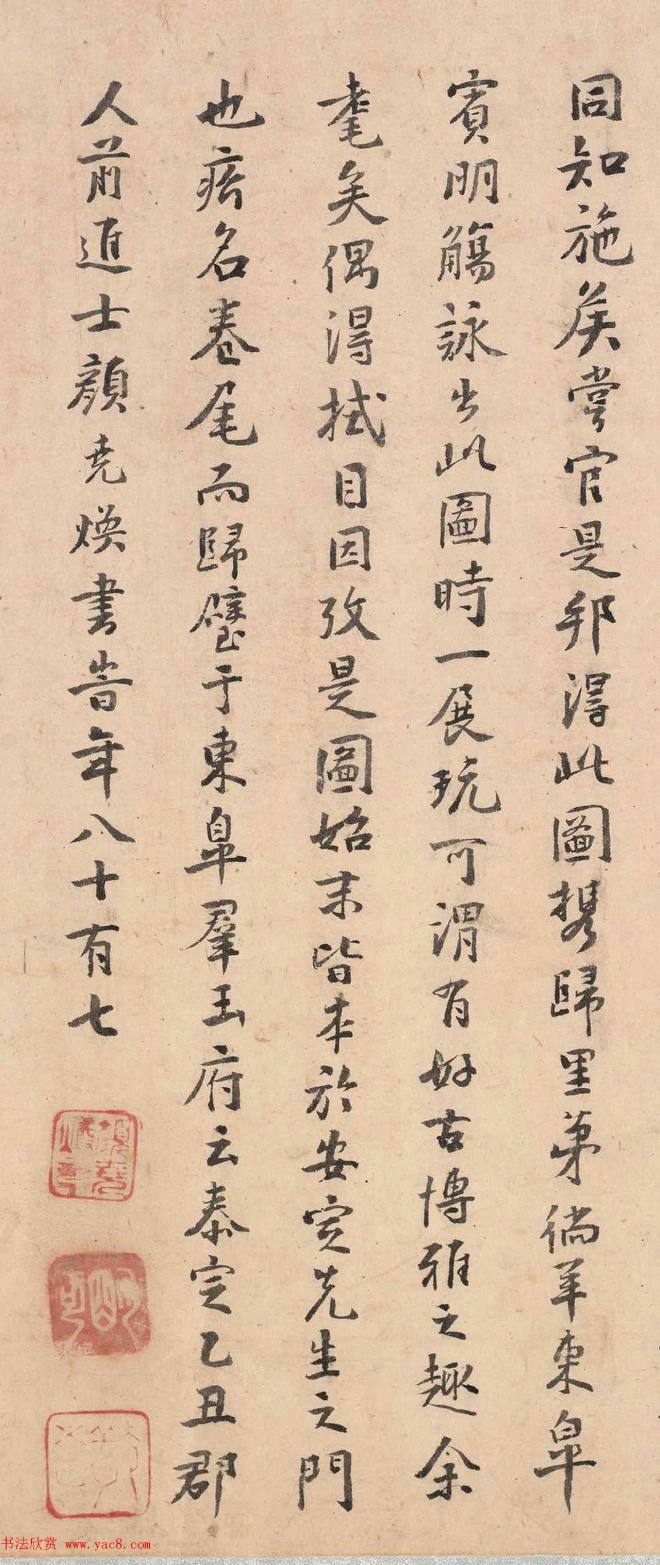 同知施侯嘗官是邦得此圖携歸里第徜羊東皐
賓朋觴詠出此圖時一展玩可謂有好古博雅之趣余
耄矣偶得拭目因攷是圖始末皆本於安定先生之門
也㾗名卷尾而歸璧于東皐羣玉府云泰定乙丑郡
人前進士顔堯煥書旹年八十有七
书法欣赏 www.yac8.com